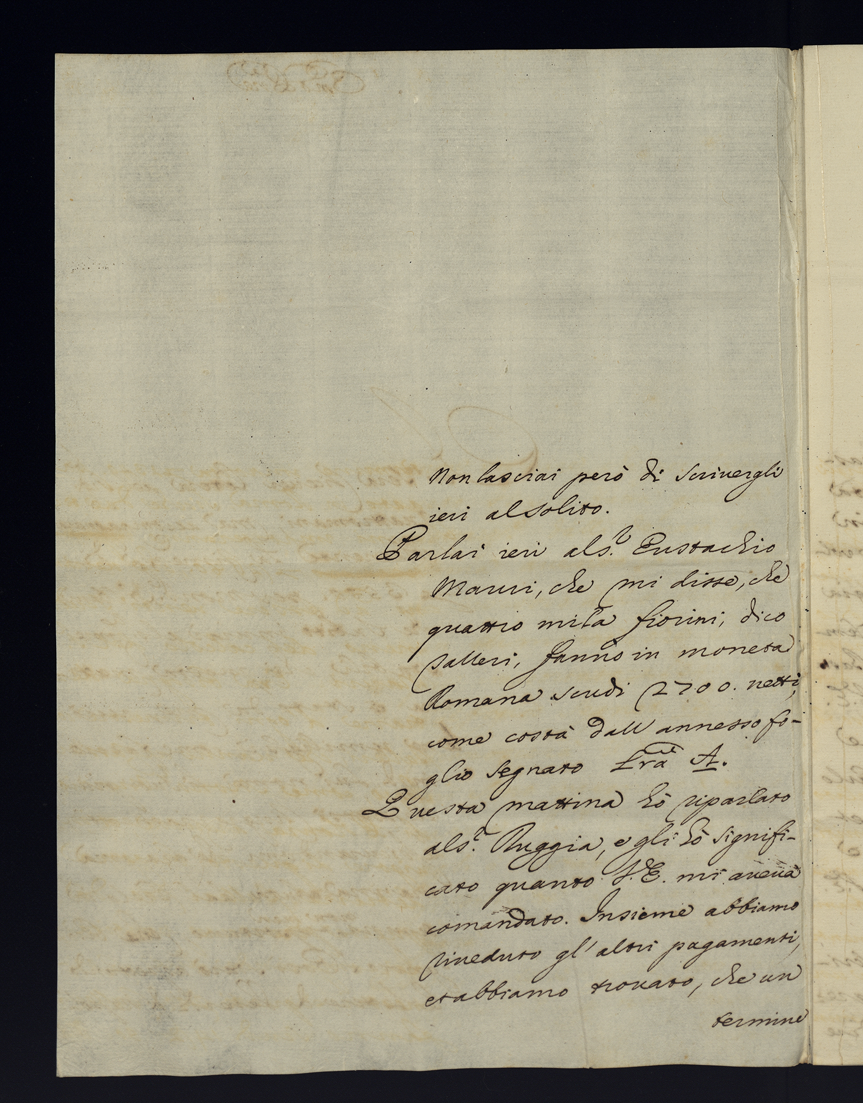 Non lasciai però di scrivergli
ieri al solito.
Parlai ieri al sr. Eustachio
Mauri, che mi disse, che
quattro mila fiorini, dico
talleri, fanno in moneta
Romana scudi 2700. netti,
come costa dall'annesso fo-
glio segnato Lra A.
Questa mattina hò riparlato
al sr. Ruggia, e gli hò signifi-
cato quanto V.E. mi aveva
comandato. Insieme abbiamo
riveduto gl'altri pagamenti,
et abbiamo trovato, che un
termine